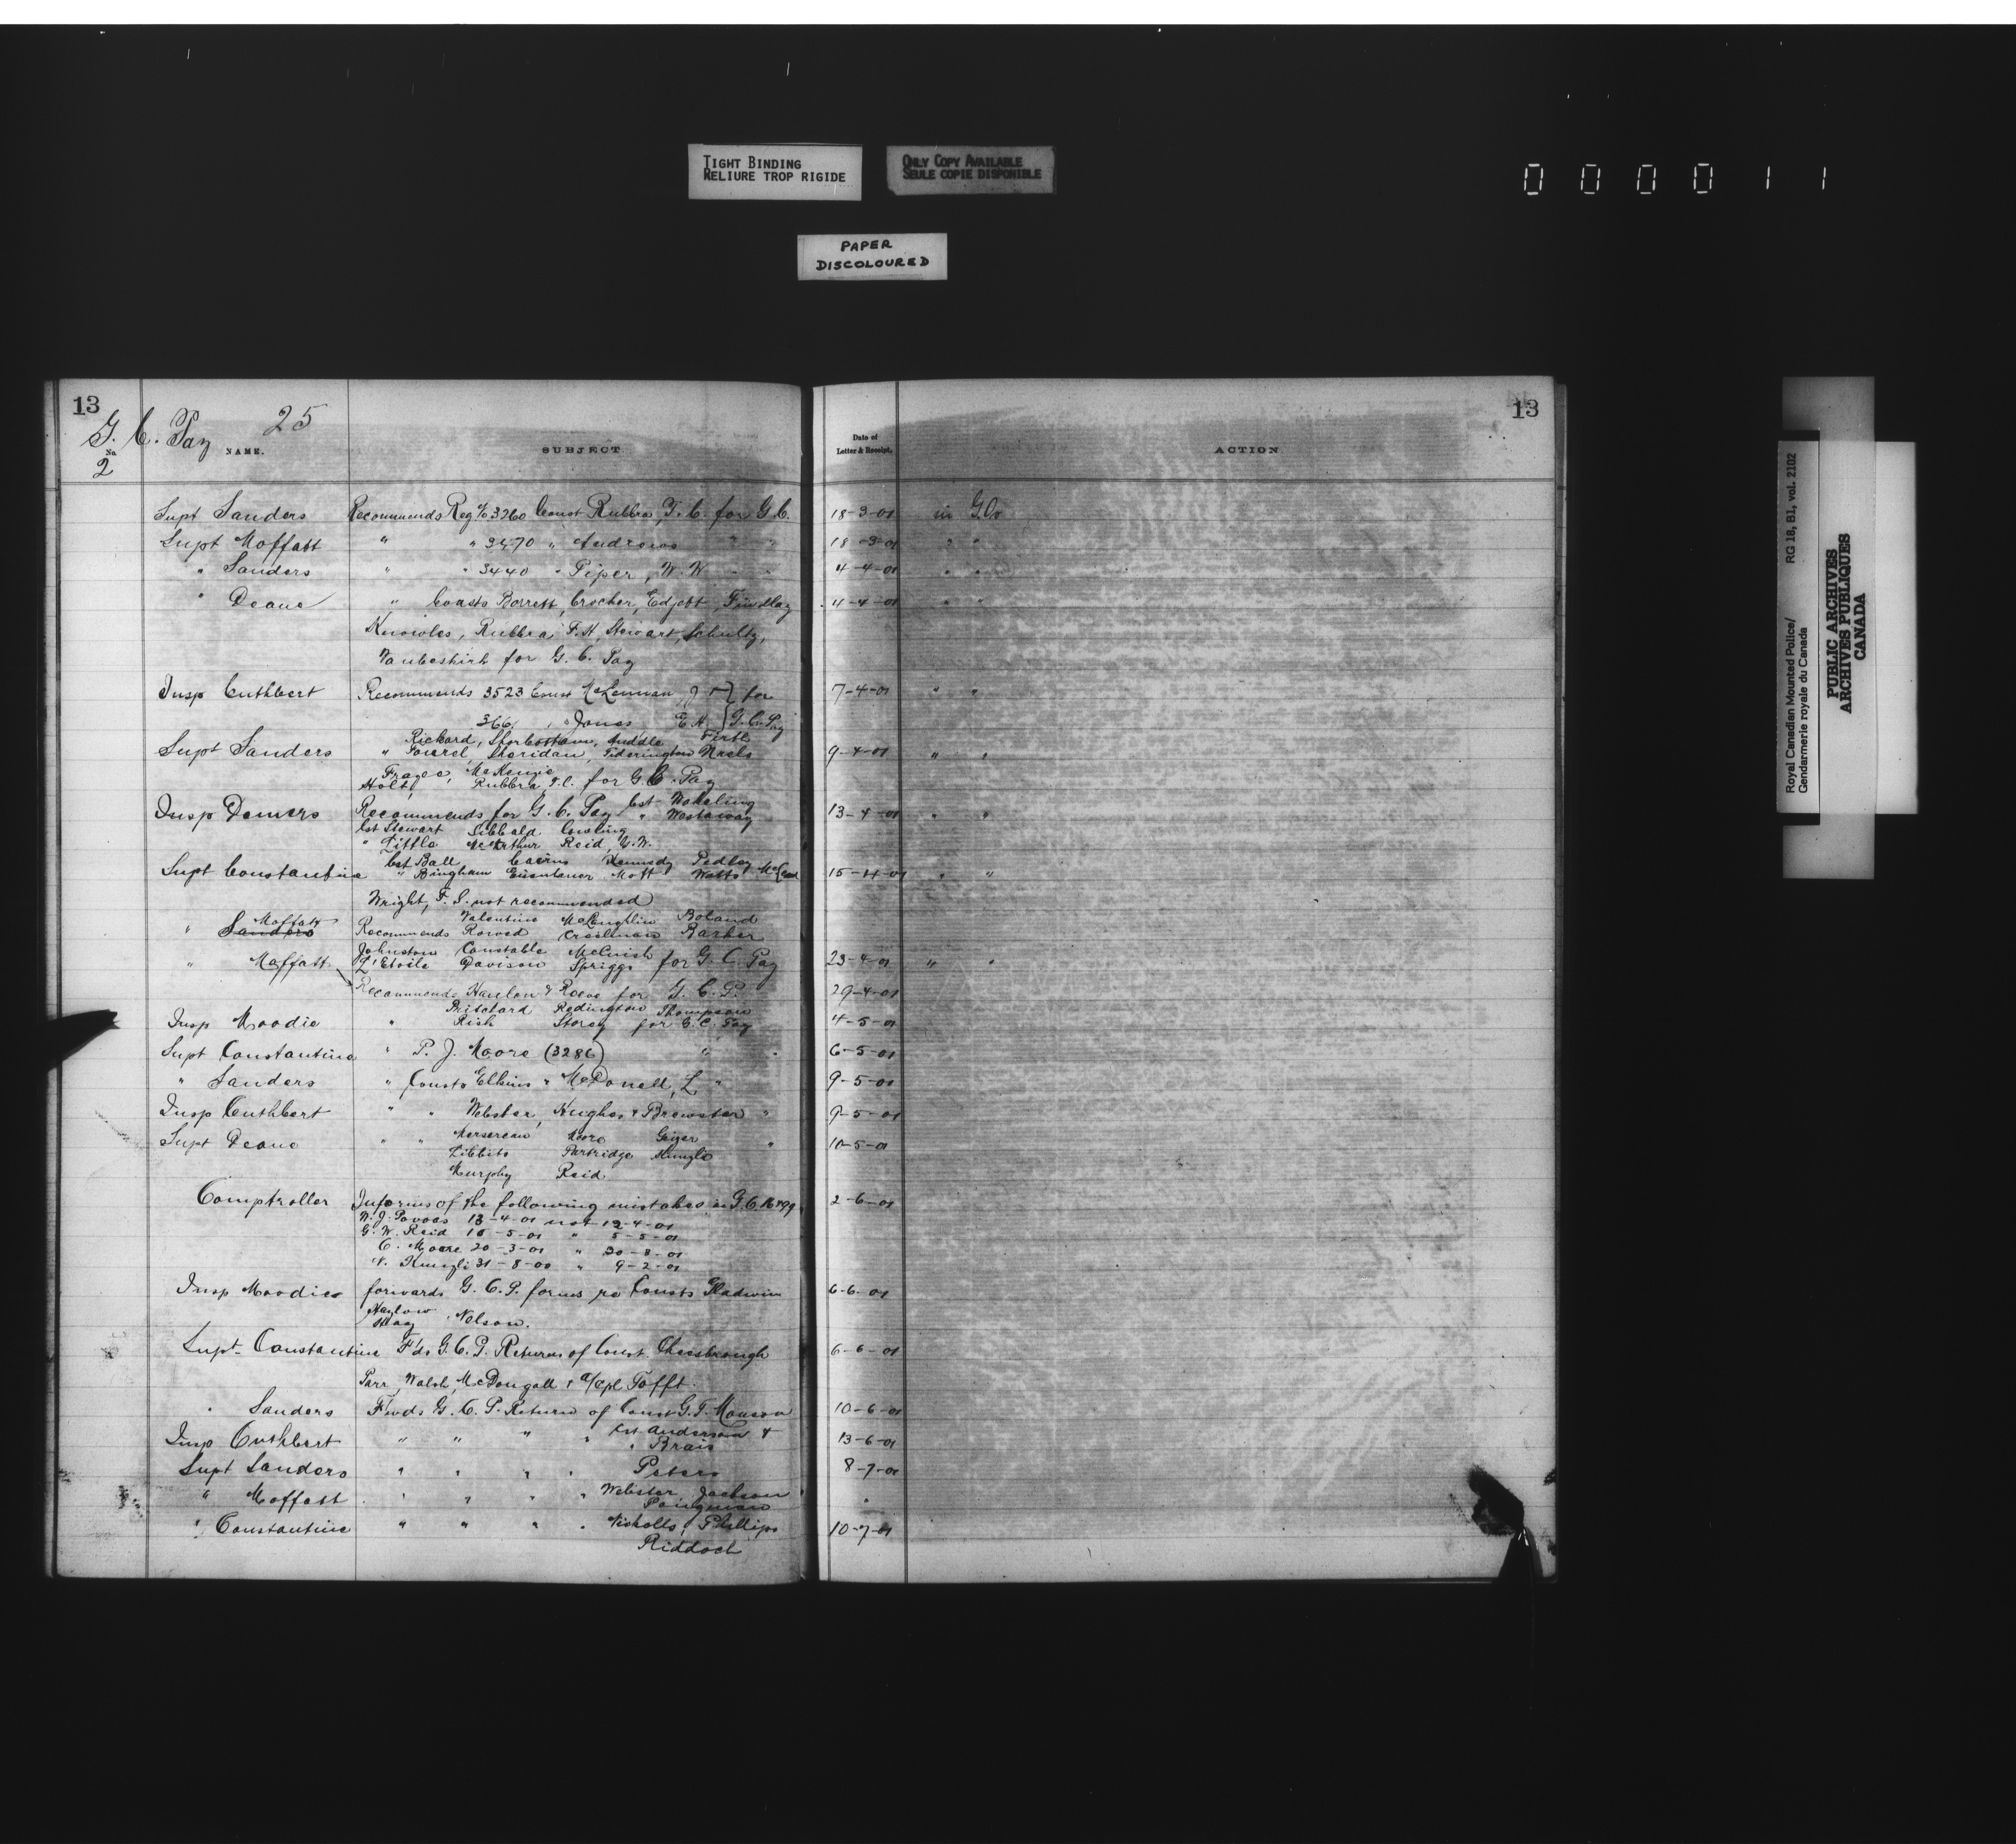 TIGHT BINDING
RELIURE TROP RIGIDE
ONLY COPY AVAILABLE
SEULE COPIE DISPONIBLE
000011
PAPER
DISCOLOURED
13
G. C. Pay 25
No
2
NAME.
SUBJECT
Date of
Letter & Receipt.
ACTION
13
Supt Sanders Recommends Reg No 3260 Const Rubbra, T.C. for G.C. 18-3-01 in G.O.
Supt Moffatt " " 3470 " Andrews " " 18-3-01 " "
" Sanders " " 3440 " Piper, W.W " " 4-4-01 " "
" Deane " Consts Barrett, Crocher, Edjett, Findlay 4-4-01 " "
Knowles, Rubbra F.H, Stewart, Schultz,
for G.C. Pay
Insp Cuthbert Recommends 3523 Const McLennan, J for 7-4-01 " "
366 " Jones E.H. G.C. Pay
Rickard, Firth
Supt Sanders " Sheridan, 9-4-01 " "
McKenzie
Holt, Rubbra T.C. for G.C. Pay
Insp Demers Recommends for G.C. Pay Cst Wakeling 13-4-01 " "
" Westaway
Cst Stewart Sibbald
" Little McArthur Reid, G.W.
Cst Ball Cairns Kennedy Pedley
Supt Constantine " Bingham Mott Watts McLeod 15-4-01 " "
Wright, F.S. not recommended
Moffatt Valentine McLaughlin Boland
" Sanders Recommends Creelman Barker
Johnston Constable McCuish
" Moffatt L'Etoile Davison Spriggs for G.C. Pay 23-4-01 " "
Recommends Hanlon & Reeve for G.C.P. 29-4-01
Pritchard Redington Thompson
Insp Moodie " Rish Storey for G.C. Pay 4-5-01
Supt Constantine " P.J. Moore (3286) " " 6-5-01
" Sanders " Consts Elkins & McDonell, L " 9-5-01
Insp Cuthbert " " Webster, Hughes & Brewster " 9-5-01
Supt Deane " " Mersereau Moore Geiger " 10-5-01
Tibbits Partridge
Murphy Reid
Comptroller Informs of the following mistakes in G.C. 2-6-01
13-4-01 not 12-4-01
G.W. Reid 15-5-01 " 5-5-01
C. Moore 20-3-01 " 30-8-01
31-8-00 " 9-2-01
Insp Moodie forwards G.C.P. forms re Consts Gladwin 6-6-01
Haslow
Nelson.
Supt Constantine F'ds G.C.P. Returns of Const. Cheesbrough 6-6-01
Parr, Walsh, McDougall & a/cpl Tofft.
" Sanders Fwds G.C.P. Return of Const G.T. Monson 10-6-01
Insp Cuthbert " " " " Cst Anderson & 13-6-01
" Brais
Supt Sanders " " " " Peters 8-7-01
" Moffatt " " " " Webster Jackson "
Pangman
" Constantine " " " " Nicholls, Phillips 10-7-01
Riddoch
Royal Canadian Mounted Police/
Gendarmerie royale du Canada
RG 18, B1, vol. 2102
PUBLIC ARCHIVES
ARCHIVES PUBLIQUES
CANADA